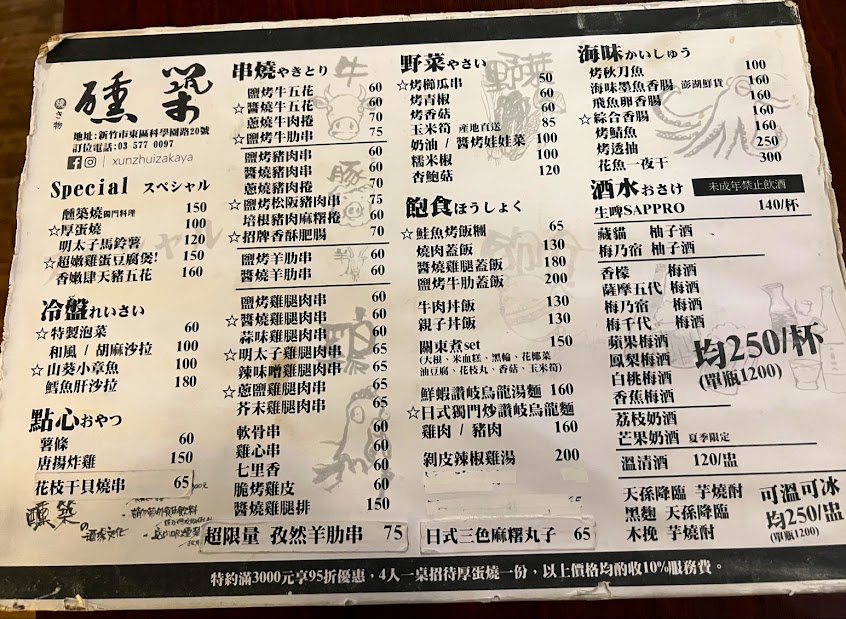 燒き物
醺築
地址:新竹市東區科學園路20號
訂位電話:03 577 0097
xunzhuizakaya
Special スペシャル
醺築燒 獨門料理 150
☆厚蛋燒 100
明太子馬鈴薯 120
☆超嫩雞蛋豆腐煲! 150
香嫩肆天豬五花 160
冷盤れいさい
☆特製泡菜 60
和風 / 胡麻沙拉 100
☆山葵小章魚 100
鱈魚肝沙拉 180
點心おやつ
薯條 60
唐揚炸雞 150
花枝干貝燒串 65元
醺築の
酒場文化
串燒やきとり
牛
鹽烤牛五花 60
☆醬燒牛五花 60
蔥燒牛肉捲 70
☆鹽烤牛肋串 75
豚
鹽烤豬肉串 60
醬燒豬肉串 60
蔥燒豬肉捲 70
☆鹽烤松阪豬肉串 75
培根豬肉麻糬捲 70
☆招牌香酥肥腸 70
鹽烤羊肋串 60
醬燒羊肋串 60
鹽烤雞腿肉串 60
☆醬燒雞腿肉串 60
蒜味雞腿肉串 60
☆明太子雞腿肉串 65
辣味噌雞腿肉串 65
☆蔥鹽雞腿肉串 65
芥末雞腿肉串 65
軟骨串 60
雞心串 60
七里香 60
脆烤雞皮 60
鹽燒雞腿排 150
超限量 孜然羊肋串 75
野菜やさい
野菜
☆烤櫛瓜串 50
烤青椒 60
烤香菇 60
玉米筍 產地直送 85
奶油 / 醬烤娃娃菜 100
糯米椒 100
杏鮑菇 120
飽食ほうしょく
☆鮭魚烤飯糰 65
燒肉蓋飯 130
醬燒雞腿蓋飯 180
鹽烤牛肋蓋飯 200
牛肉丼飯 130
親子丼飯 130
關東煮set 150
(大根、米血糕、黑輪、花椰菜
油豆腐、花枝丸、香菇、玉米筍)
鮮蝦讚岐烏龍湯麵 160
☆日式獨門炒讚岐烏龍麵
雞肉 / 豬肉 160
剝皮辣椒雞湯 200
日式三色麻糬丸子 65
海味かいしゅう
烤秋刀魚 100
海味墨魚香腸 澎湖鮮貨 160
飛魚卵香腸 160
☆綜合香腸 160
烤鯖魚 160
烤透抽 250
花魚一夜干 300
酒水おさけ 未成年禁止飲酒
生啤SAPPRO 140/杯
藏貓 柚子酒
梅乃宿 柚子酒
香檬 梅酒
薩摩五代 梅酒
梅乃宿 梅酒
梅千代 梅酒
蘋果梅酒
鳳梨梅酒
白桃梅酒
香蕉梅酒
均250/杯
(單瓶1200)
荔枝奶酒
芒果奶酒 夏季限定
溫清酒 120/盅
天孫降臨 芋燒酎
黑麴 天孫降臨
木挽 芋燒酎
可溫可冰
均250/盅
(單瓶1200)
特約滿3000元享95折優惠,4人一桌招待厚蛋燒一份,以上價格均酌收10%服務費。